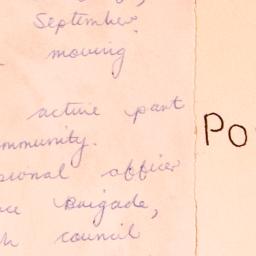 September
moving
active part
mmunity.
sional officer
ce Brigade,
h council
Po